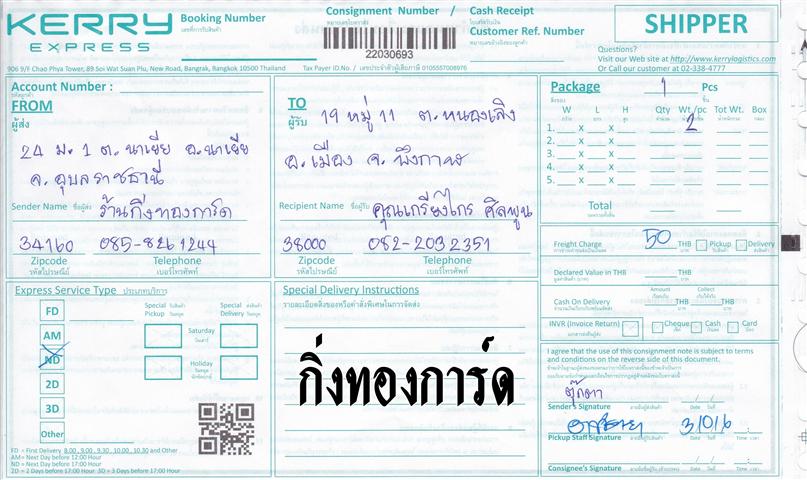 KERRY
EXPRESS
Booking Number
เลขที่การรับสินค้า
Consignment Number /
หมายเลขใบตราส่ง
22030693
Cash Receipt
ใบเสร็จรับเงิน
Customer Ref. Number
หมายเลขอ้างอิงของลูกค้า
SHIPPER
Questions?
Visit our Web site at http://www.kerrylogistics.com
Or Call our customer at 02-338-4777
906 9/F Chao Phya Tower, 89 Soi Wat Suan Plu, New Road, Bangrak, Bangkok 10500 Thailand
Tax Payer ID.No. / เลขประจำตัวผู้เสียภาษี 0105557008976
Account Number :
FROM
ผู้ส่ง
24 ม. 1 ต. นาเยีย อ. นาเยีย
จ. อุบลราชธานี
Sender Name ชื่อผู้ส่ง ร้านกิ่งทองการ์ด
34160 085-8261244
Zipcode Telephone
รหัสไปรษณีย์ เบอร์โทรศัพท์
TO
ผู้รับ
19 หมู่ 11 ต. หนองเลิง
อ. เมือง จ. บึงกาฬ
Recipient Name ชื่อผู้รับ คุณเกรียงไกร ศิลพูน
38000 082-2032351
Zipcode Telephone
รหัสไปรษณีย์ เบอร์โทรศัพท์
Package 1 Pcs
W L H Qty Wt./pc Tot Wt. Box
1. X X 2
2. X X
3. X X
4. X X
5. X X
Total
Freight Charge 50 THB Pickup Delivery
Declared Value in THB THB
Amount Collect
Cash On Delivery THB THB
INVR (Invoice Return) Cheque Cash Card
Express Service Type ประเภทบริการ
Special Pickup
Special Delivery
FD
AM
ND
2D
3D
Other
Saturday
วันเสาร์
Holiday
วันหยุด
FD = First Delivery 8.00 , 9.00 , 9.30 , 10.00 , 10.30 and Other
AM= Next Day before 12:00 Hour
ND = Next Day before 17:00 Hour
2D = 2 Days before 17:00 Hour 3D = 3 Days before 17:00 Hour
Special Delivery Instructions
รายละเอียดสิ่งของหรือคำสั่งพิเศษในการจัดส่ง
กิ่งทองการ์ด
I agree that the use of this consignment note is subject to terms
and conditions on the reverse side of this document.
ตุ๊กตา
Sender's Signature ลายมือชื่อผู้ส่ง Date วันที่
3/01/6
Pickup Staff Signature Date วันที่ Time เวลา
Consignee's Signature Date วันที่ Time เวลา